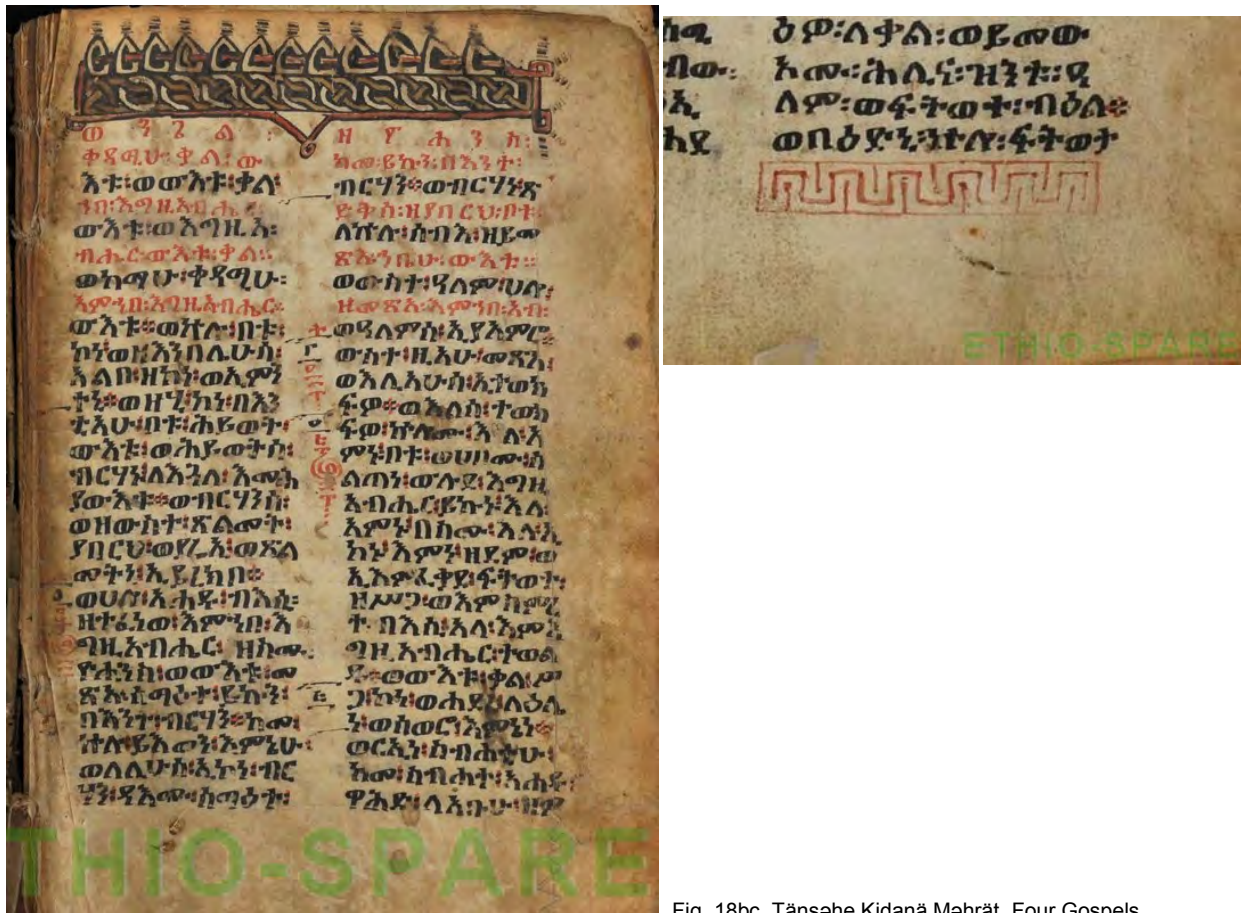 ወ ን ጌ ል ፡
ቀዳሚሁ፡ቃል፡ው
እቱ፡ወውእቱ፡ቃል፡
ኀበ፡እግዚአብሔር፡
ውእቱ፡ወእግዚአ፡
ብሔር፡ውእቱ፡ቃል።
ወከማሁ፡ቀዳሚሁ፡
እምኀበ፡እግዚአብሔር፡
ውእቱ፨ወኵሉ፡ቦቱ፡
ኮነ፡ወዘእንበሌሁሰ፡
አልቦ፡ዘኮነ፡ወኢምን
ትኒ፨ወዘሂ፡ኮነ፡በእን
ቲአሁ፡ቦቱ፡ሕይወት፡
ውእቱ፡ወሕይወትሰ፡
ብርሃኑ፡ለእጓለ፡እመሕ
ያው፡እቱ፨ወብርሃንሰ፡
ወዘውስተ፡ጽልመት፡
ያበርህ፡ወያሬኢ፡ወጽል
መትኒ፡ኢይረክቦ፨
ወሀሎ፡አሐዱ፡ብእሲ፡
ዘተፈነወ፡እምኀበ፡እ
ግዚአብሔር፡ዘስሙ፡
ዮሐንስ፡ወውእቱ፡መ
ጽአ፡ስማዕተ፡ይኩን፡
በእንተ፡ብርሃን፨ከመ፡
ኵሉ፡ይእመን፡እምኔሁ፡
ወለሊሁሰ፡ኢኮነ፡ብር
ሃነ፡ዳእሙ፡ስማዕተ፡
ዘ ዮ ሐ ን ስ ፡
ከመ፡ይኩን፡በእንተ፡
ብርሃን፨ወብርሃነ፡ጽ
ድቅሰ፡ዘያበርህ፡ቦቱ፡
ለኵሉ፡ሰብእ፡ዘይመ
ጽእ፡ኀቤሁ፡ውእቱ።
ወውስተ፡ዓለም፡ሀሎ፡
ዘመጽአ፡እምኀበ፡አብ፡
ወዓለምሰ፡ኢያእምሮ፡
ውስተ፡ዚአሁ፡መጽአ፡
ወእሊአሁሰ፡ኢተወክ
ፍዎ፨ወእለሰ፡ተወክ
ፍዎ፡ኵሎሙ፡እለ፡አ
ምኑ፡ቦቱ፡ወሀቦሙ፡ስ
ልጣነ፡ውሉደ፡እግዚ
አብሔር፡ይኩኑ፡እለ፡
አምኑ፡በስሙ፡እለ፡ኢ
ኮኑ፡እምነ፡ዘደም፡ወ
ኢእምፈቃደ፡ፍትወተ፡
ዘሥጋ፡ወእምስምረ
ተ፡ብእሲ፡አላ፡እምእ
ግዚአብሔር፡ተወል
ዱ፨ወውእቱ፡ቃል፡ሥ
ጋ፡ኮነ፡ወሐደረ፡ላዕሌ
ነ፡ወሰወሮ፡እምኔነ፨
ወርኢነ፡ስብሐቲሁ፡
ከመ፡ስብሐተ፡አሐዱ፡
ዋሕድ፡ለአቡሁ፡ዘም
ዕም፡ለቃል፡ወይመው
እሙ፡ሕሊና፡ዝንቱ፡ዓ
ለም፡ወፍትወት፡ብዕል፨
ወበዕድኒ፡ኵሉ፡ፍትወታ
ETHIO-SPARE
THIO-SPARE
Fig. 18bc. Tänsǝhe Kidanä Mǝhrät, Four Gospels